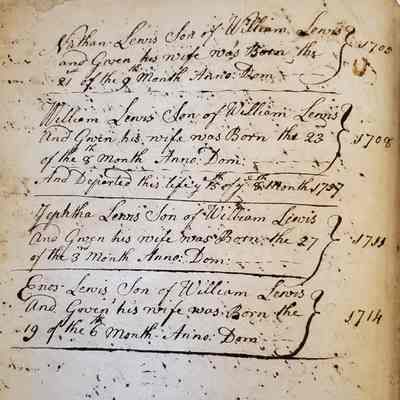 Nathan Lewis Son of William Lewis
and Gwen his wife was Born the 1705
21 of the 9th Month Anno: Dom
William Lewis Son of William Lewis
And Gwen his wife was Born the 23 1708
of the 8th Month Anno: Dom:
And Departed this life ye 15th of ye 8th Month 1757
Jephtha Lewis Son of William Lewis
And Gwen his wife was Born the 27 1711
of the 3 Month Anno: Dom:
Enos Lewis Son of William Lewis
And Gwen his wife was Born the 1714
19 of the 6th Month Anno: Dom